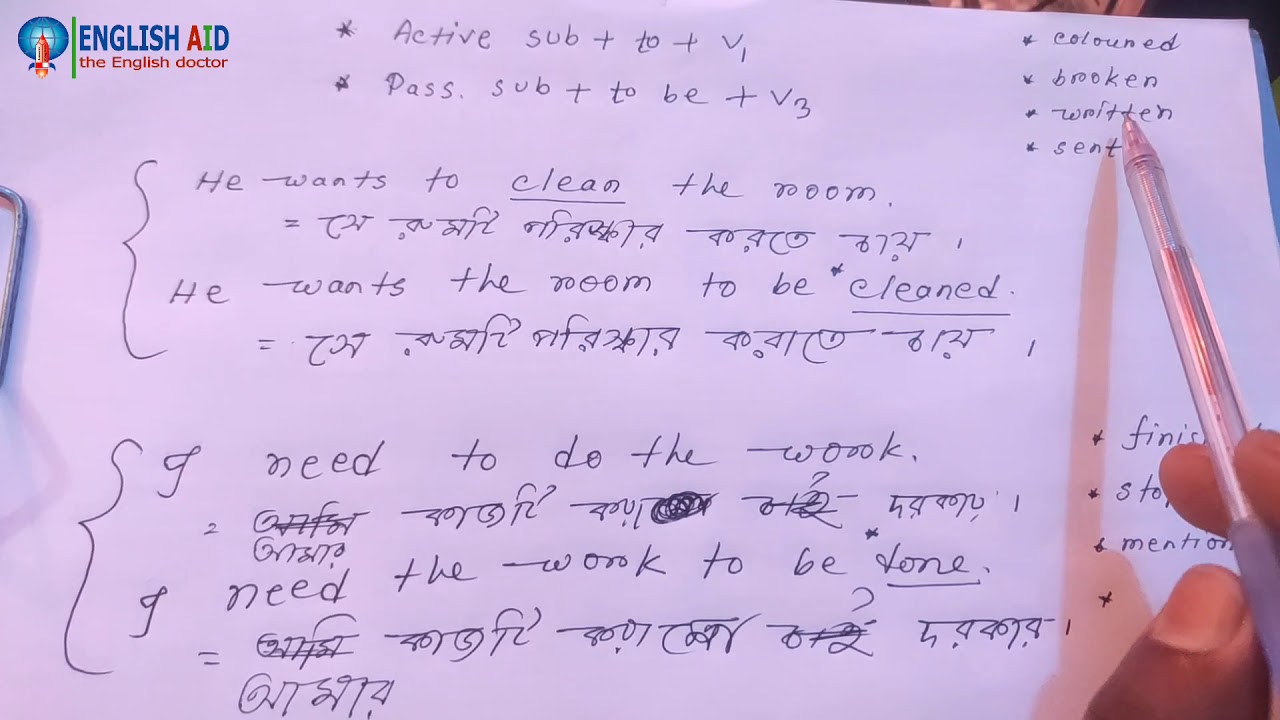 ENGLISH AID
the English doctor
* Active sub + to + V1
* Pass. sub + to be + V3
* coloured
* broken
* written
* sent
He wants to clean the room.
= সে রুমটি পরিষ্কার করতে চায়।
He wants the room to be * cleaned.
= সে রুমটি পরিষ্কার করাতে চায়।
I need to do the work.
= আমি কাজটি করা চাই ? দরকার।
আমার
I need the work to be * done.
= আমি কাজটি করানো চাই ? দরকার।
আমার
* finis
* sto
* mention
*